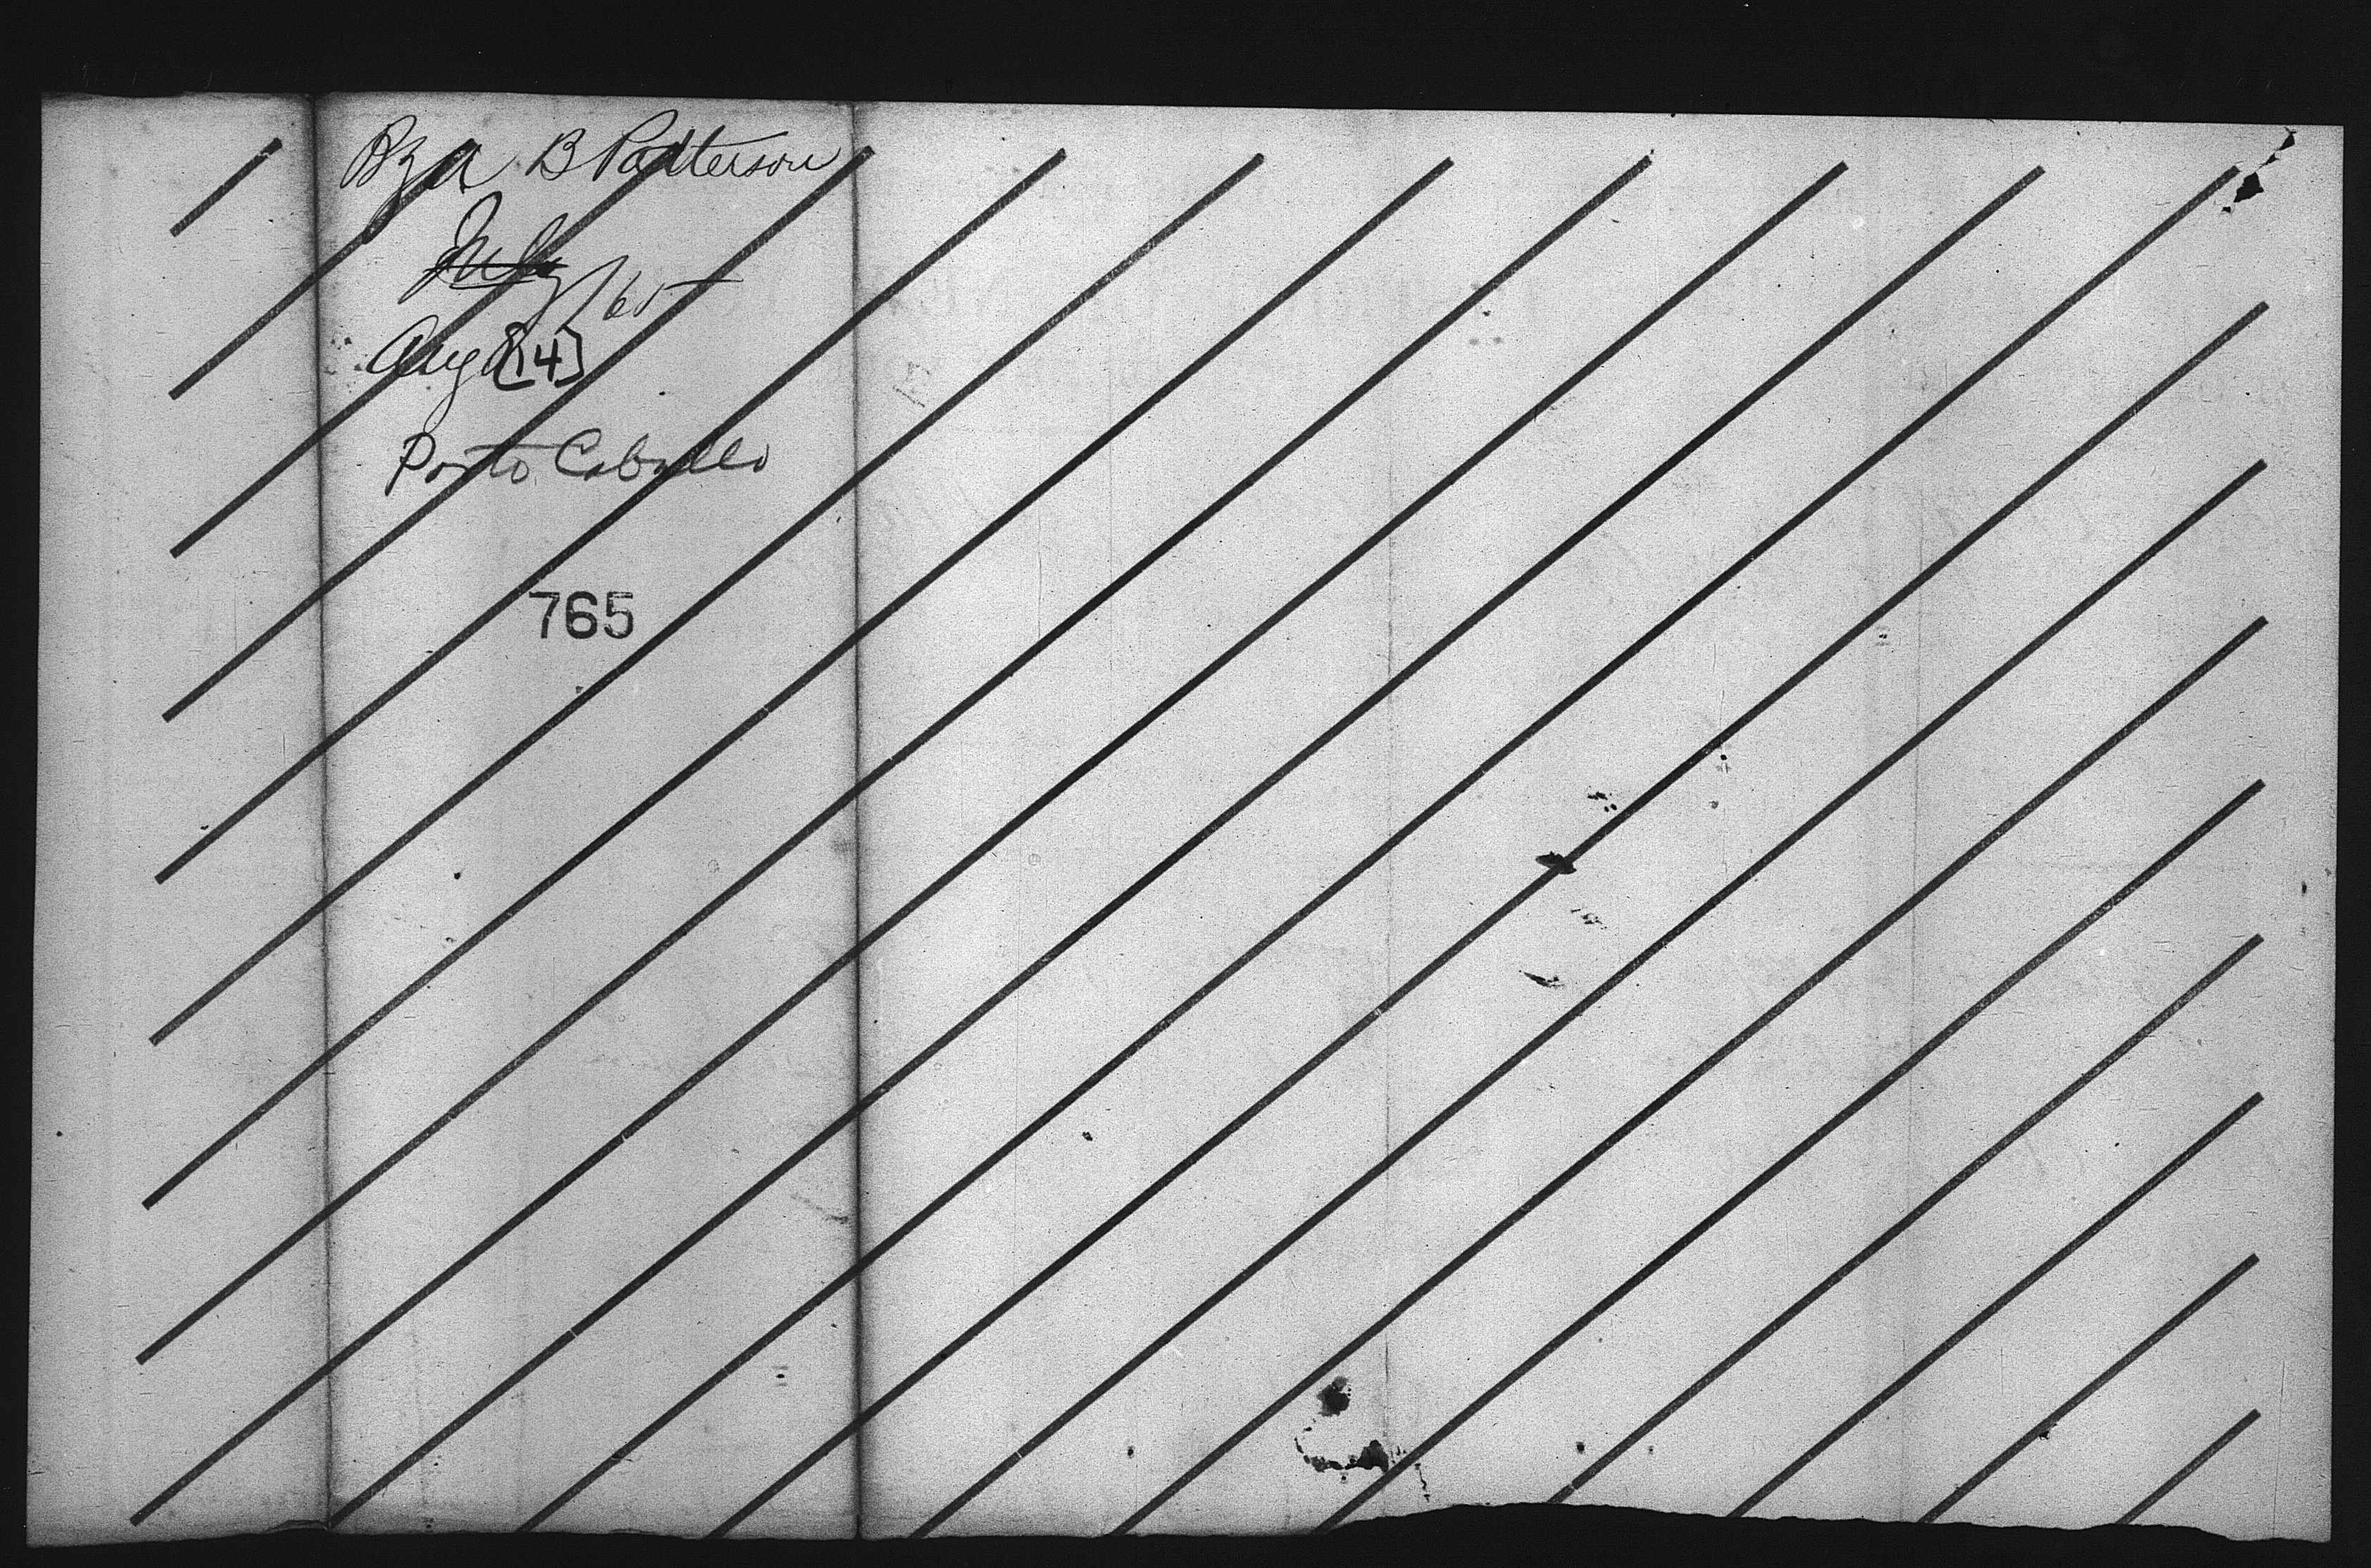 Bza B Patterson
July /65
Aug [14]
Porto Cabello
765